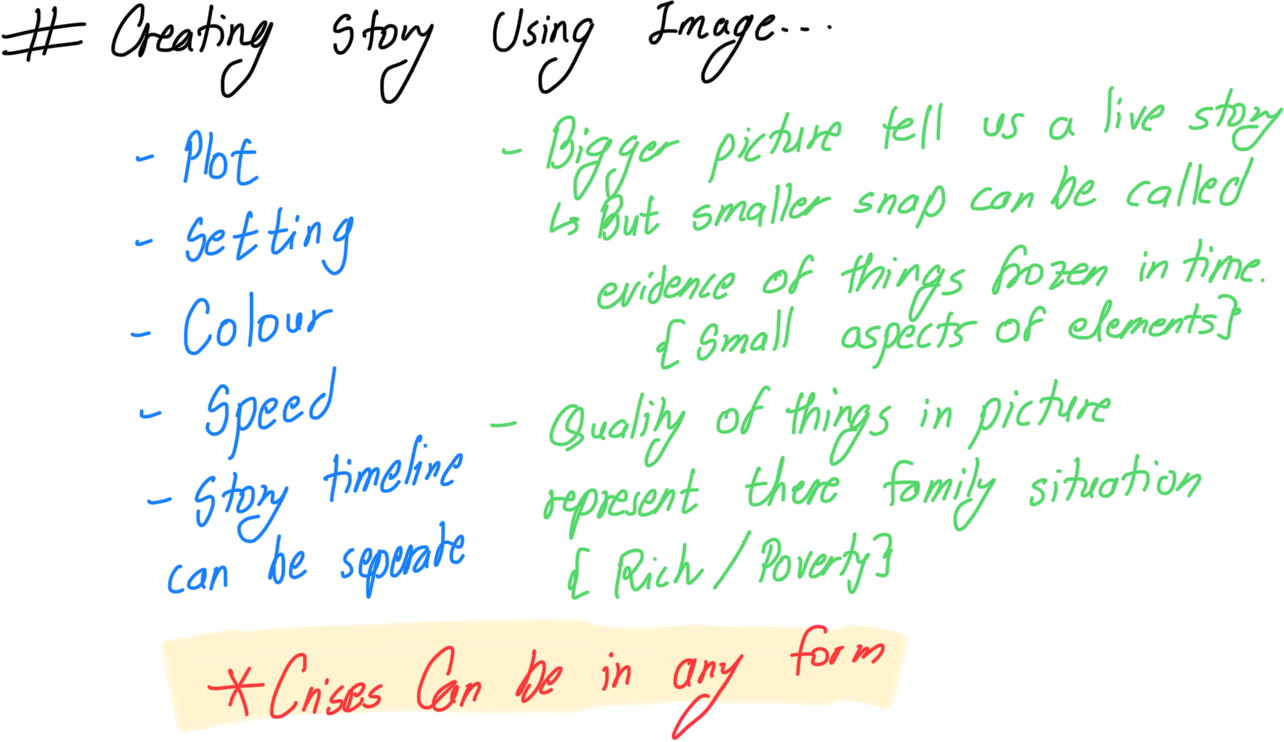 # Creating Story Using Image...
- Plot
- Setting
- Colour
- Speed
- Story timeline
can be seperate
- Bigger picture tell us a live story
↳ But smaller snap can be called
evidence of things frozen in time.
{ Small aspects of elements}
- Quality of things in picture
represent there family situation
{ Rich / Poverty}
*Crises Can be in any form